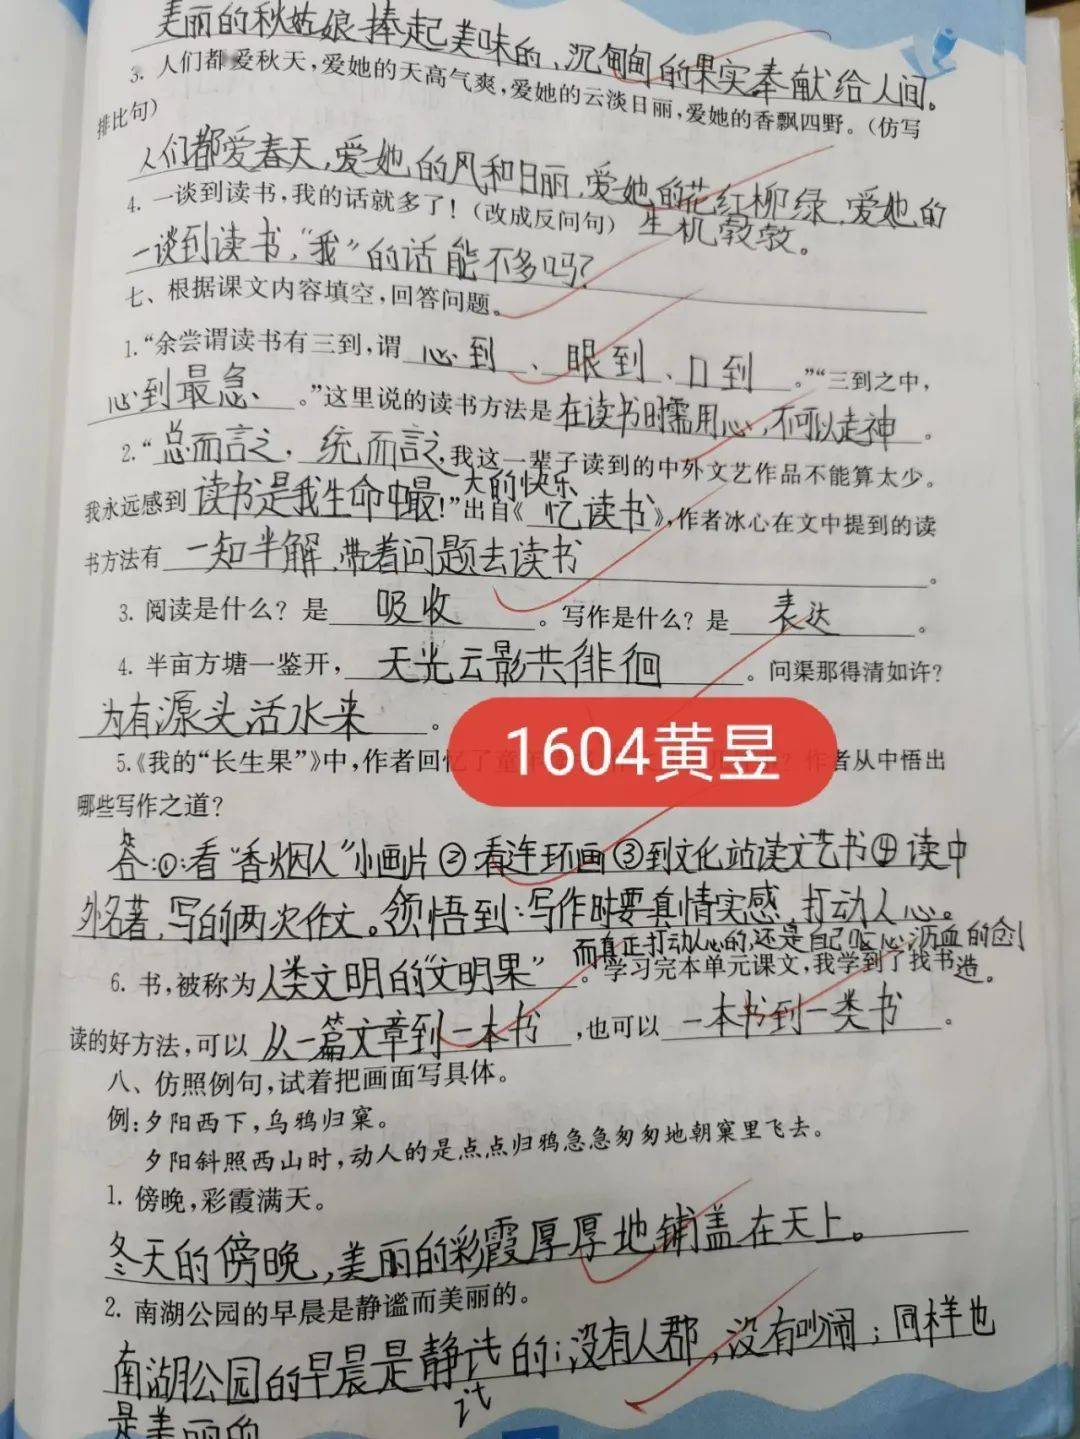 美丽的秋姑娘捧起美味的、沉甸甸的果实奉献给人间。
3. 人们都爱秋天，爱她的天高气爽，爱她的云淡日丽，爱她的香飘四野。（仿写
排比句）
人们都爱春天，爱她的风和日丽，爱她的花红柳绿，爱她的
生机勃勃。
4. 一谈到读书，我的话就多了！（改成反问句）
一谈到读书，“我”的话能不多吗？
七、根据课文内容填空，回答问题。
1.“余尝谓读书有三到，谓心到、眼到、口到。”“三到之中，
心到最急、。”这里说的读书方法是在读书时需用心，不可以走神。
2.“总而言之，统而言之，我这一辈子读到的中外文艺作品不能算太少。
我永远感到读书是我生命中最大的快乐！”出自《忆读书》，作者冰心在文中提到的读
书方法有一知半解、带着问题去读书。
3. 阅读是什么？是吸收。写作是什么？是表达。
4. 半亩方塘一鉴开，天光云影共徘徊。问渠那得清如许？
为有源头活水来。
1604黄昱
5.《我的“长生果”》中，作者回忆了童年 作者从中悟出
哪些写作之道？
答：①看“香烟人”小画片②看连环画③到文化站读文艺书④读中
外名著，写的两次作文。领悟到：写作时要真情实感，打动人心。
而真正打动人心的，还是自己呕心沥血的创造。
6. 书，被称为人类文明的“文明果”。学习完本单元课文，我学到了找书
读的好方法，可以从一篇文章到一本书，也可以一本书到一类书。
八、仿照例句，试着把画面写具体。
例：夕阳西下，乌鸦归窠。
夕阳斜照西山时，动人的是点点归鸦急急匆匆地朝窠里飞去。
1. 傍晚，彩霞满天。
冬天的傍晚，美丽的彩霞厚厚地铺盖在天上。
2. 南湖公园的早晨是静谧而美丽的。
南湖公园的早晨是静 的；没有人群，没有吵闹；同样也
是美丽的